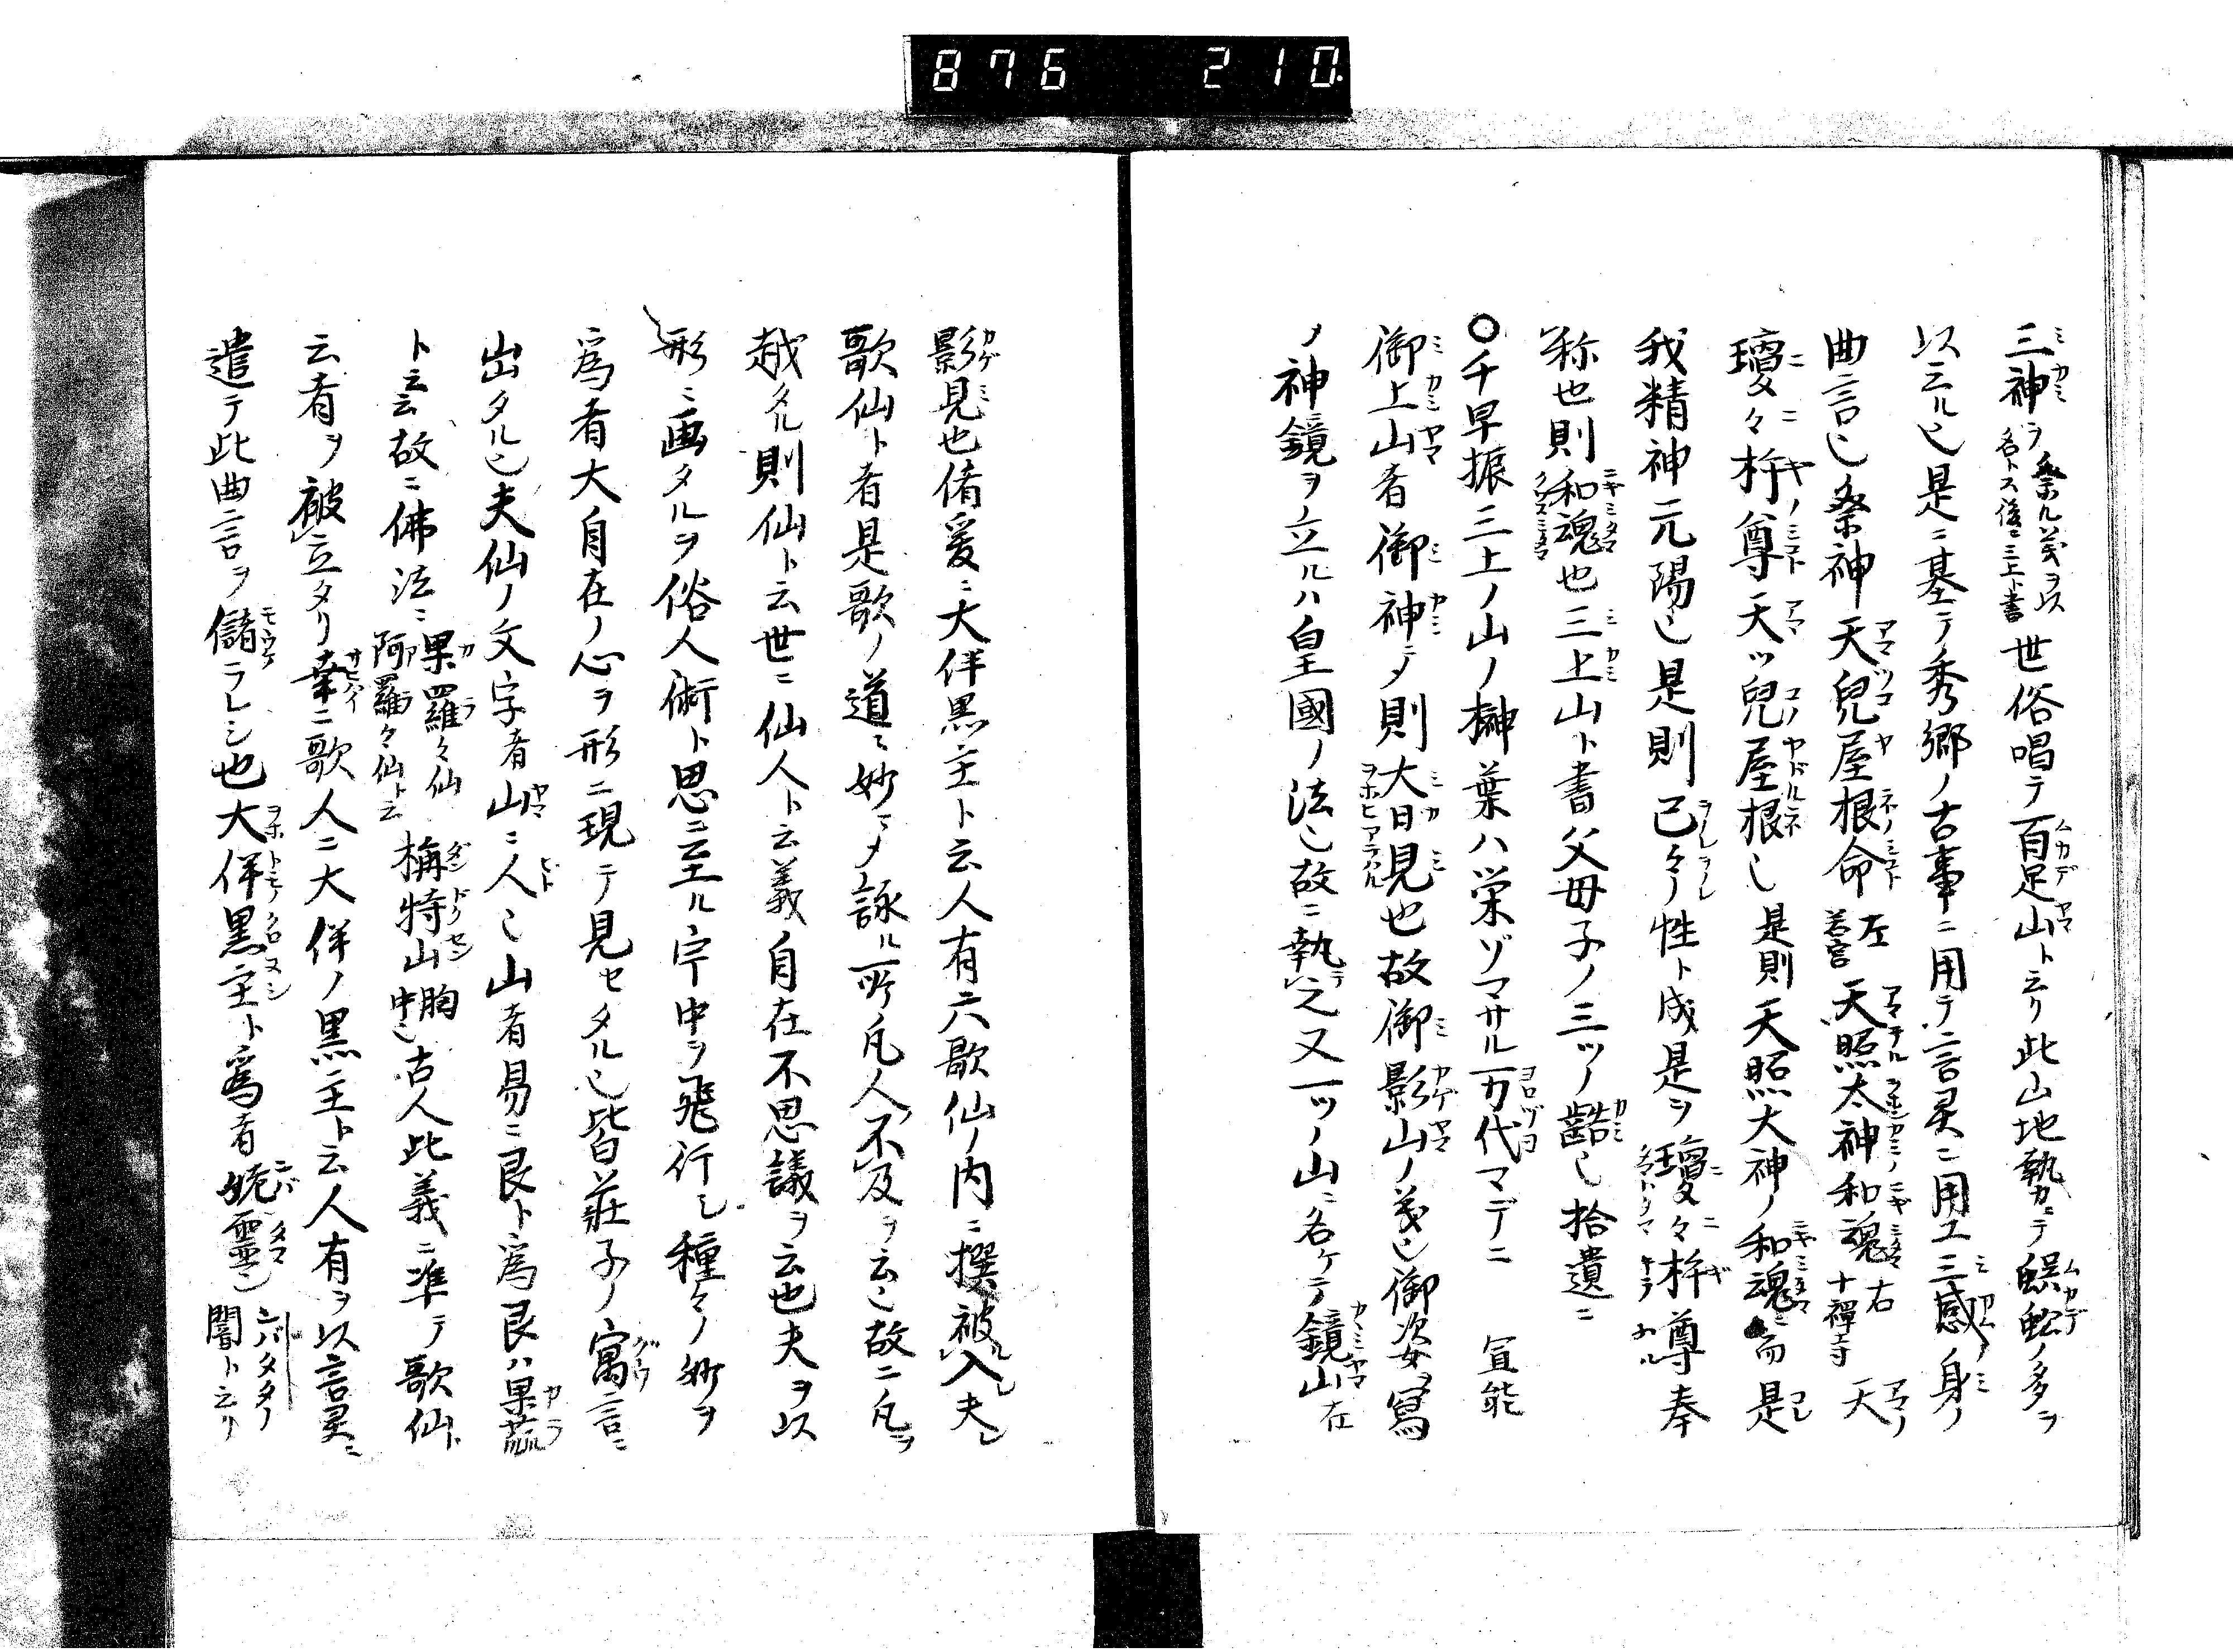 876 210
三神ヲ祭ル義ヲ以名トス後ニ三上ト書世俗唱テ百足山ト云リ此山地執カニテ蜈蚣ノ多ヲ
以云ル也是ニ基テ秀郷ノ古事ニ用テ言灵ニ用ユ三感ノ身ノ
曲言也祭神天兒屋根命左若宮天照太神和魂右十禪寺天
瓊々杵尊天ツ兒屋根也是則天照大神ノ和魂ニ而是
我精神元陽也是則己々ノ性ト成是ヲ瓊々杵尊奉
称也則和魂也三上山ト書父母子ノ三ツノ齢也拾遺ニ
〇千早振三上ノ山ノ榊葉ハ栄ゾマサル万代マデニ 宣能
御上山者御神ニテ則大日見也故御影山ノ義也御姿ヲ寫
ノ神鏡ヲ立ルハ皇國ノ法也故ニ執之又一ツノ山ニ名ケテ鏡山在
影見也偖爰ニ大伴黒主ト云人有六歌仙ノ内ニ撰被入夫
歌仙ト者是歌ノ道ニ妙ニメ詠ル所凡人不及ヲ云也故ニ凡ヲ
越タル則仙ト云世ニ仙人ト云義自在不思議ヲ云也夫ヲ以
形ニ画タルヲ俗人術ト思ニ至ル宇中ヲ飛行シ種々ノ妙ヲ
爲者大自在ノ心ヲ形ニ現テ見セタル也皆莊子ノ寓言ニ
出タル也夫仙ノ文字者山ニ人也山者易ニ艮ト爲艮ハ果蓏
ト云云故ニ佛法ニ果羅々仙阿羅々仙ト云栴特山胸中也古人此義ニ準テ歌仙ト
云者ヲ被立タリ幸ニ歌人ニ大伴ノ黒主ト云人有ヲ以言灵ニ
遣テ此曲言ヲ儲ラレシ也大伴黒主ト爲者 靈也 闇ト云リ